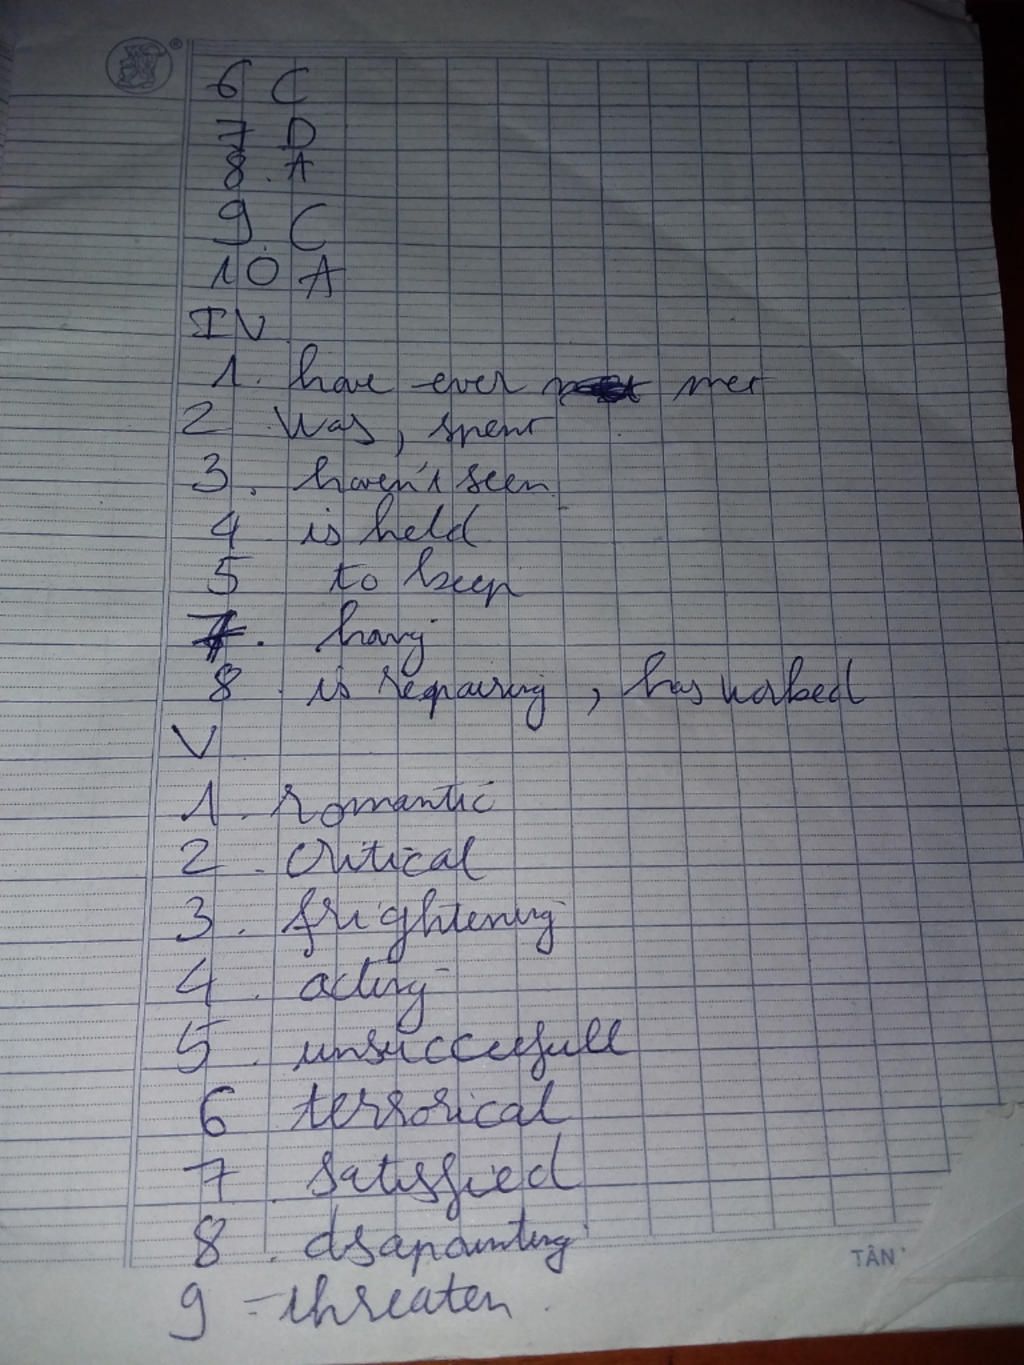 6 C
7 D
8. A
9. C
10 A
IV
1. have ever met
2 Was, spent
3. haven't seen
4 is held
5 to keep
7. having
8. is repairing, has worked
V
1. romantic
2. critical
3. frightening
4. acting
5. unsuccesfull
6 terrorical
7. satisfied
8. dsapointing
9 - threaten.
TÂN
®